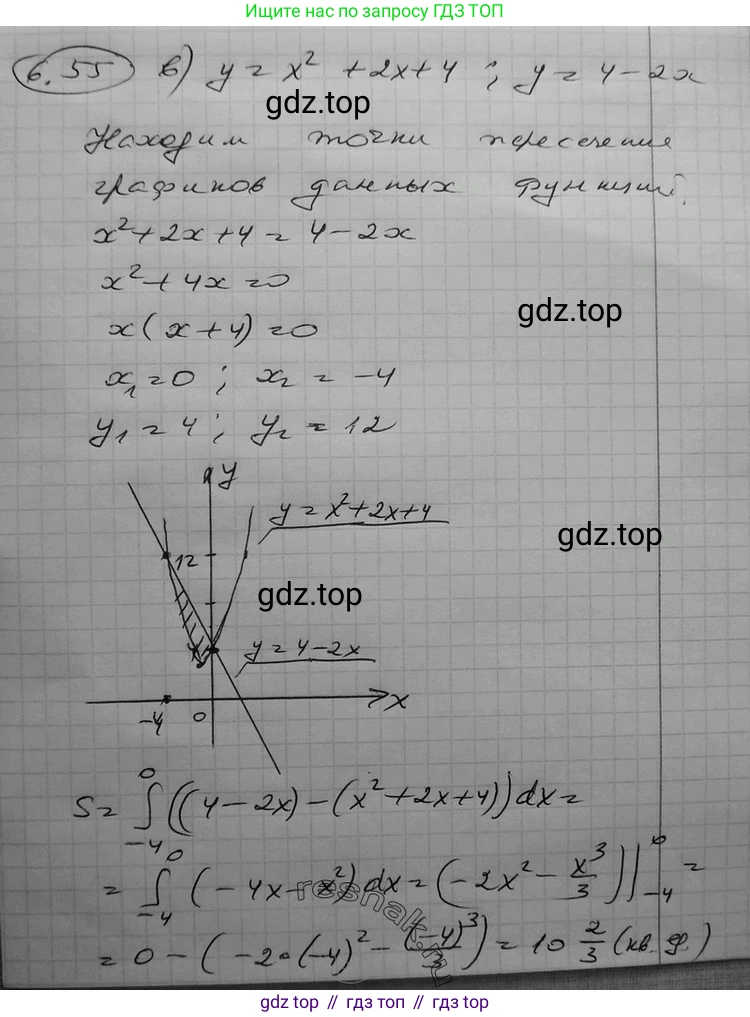 Ищите нас по запросу ГДЗ ТОП
6.55 в) y = x² + 2x + 4 ; y = 4 - 2x
gdz.top
Находим точки пересечения
графиков данных функций.
x² + 2x + 4 = 4 - 2x
x² + 4x = 0
gdz.top
x(x + 4) = 0
x₁ = 0 ; x₂ = -4
y₁ = 4 ; y₂ = 12
y
y = x² + 2x + 4
gdz.top
12
gdz.top
4
y = 4 - 2x
-4 0 x
S = ∫₋₄⁰ ((4 - 2x) - (x² + 2x + 4)) dx =
= ∫₋₄⁰ (-4x - x²) dx = (-2x² - x³/3) |₋₄⁰ =
reshak.ru
= 0 - (-2·(-4)² - (-4)³/3) = 10 2/3 (кв. ед.)
gdz top // гдз топ // gdz top